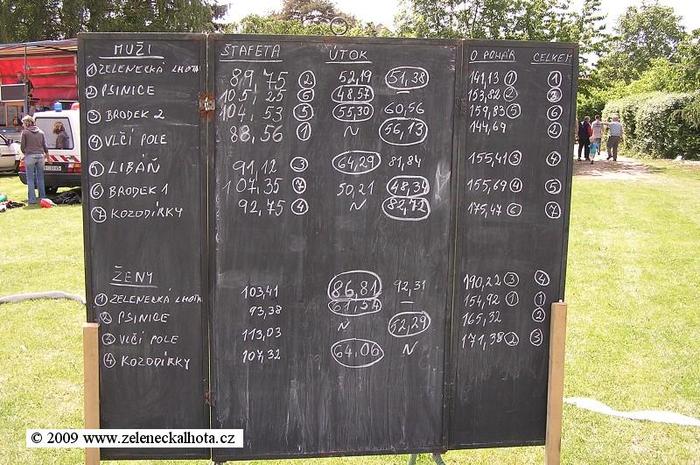 MUŽI ŠTAFETA ÚTOK O POHÁR CELKEM
1 ZELENECKÁ LHOTA 89,75 2 52,19 51,38 141,13 1 1
2 PSINICE 105,25 6 48,57 153,82 2 2
3 BRODEK 2 104,53 5 55,30 60,56 159,83 5 6
4 VLČÍ POLE 88,56 1 N 56,13 144,69 2
5 LIBÁŇ 91,12 3 64,29 81,84 155,41 3 4
6 BRODEK 1 107,35 7 50,21 48,34 155,69 4 5
7 KOZODÍRKY 92,75 4 N 82,72 175,47 6 7
ŽENY
1 ZELENECKÁ LHOTA 103,41 86,81 92,31 190,22 3 4
2 PSINICE 93,38 61,54 154,92 1 1
3 VLČÍ POLE 113,03 N 52,29 165,32 2
4 KOZODÍRKY 107,32 64,06 N 171,38 2 3
© 2009 www.zeleneckalhota.cz